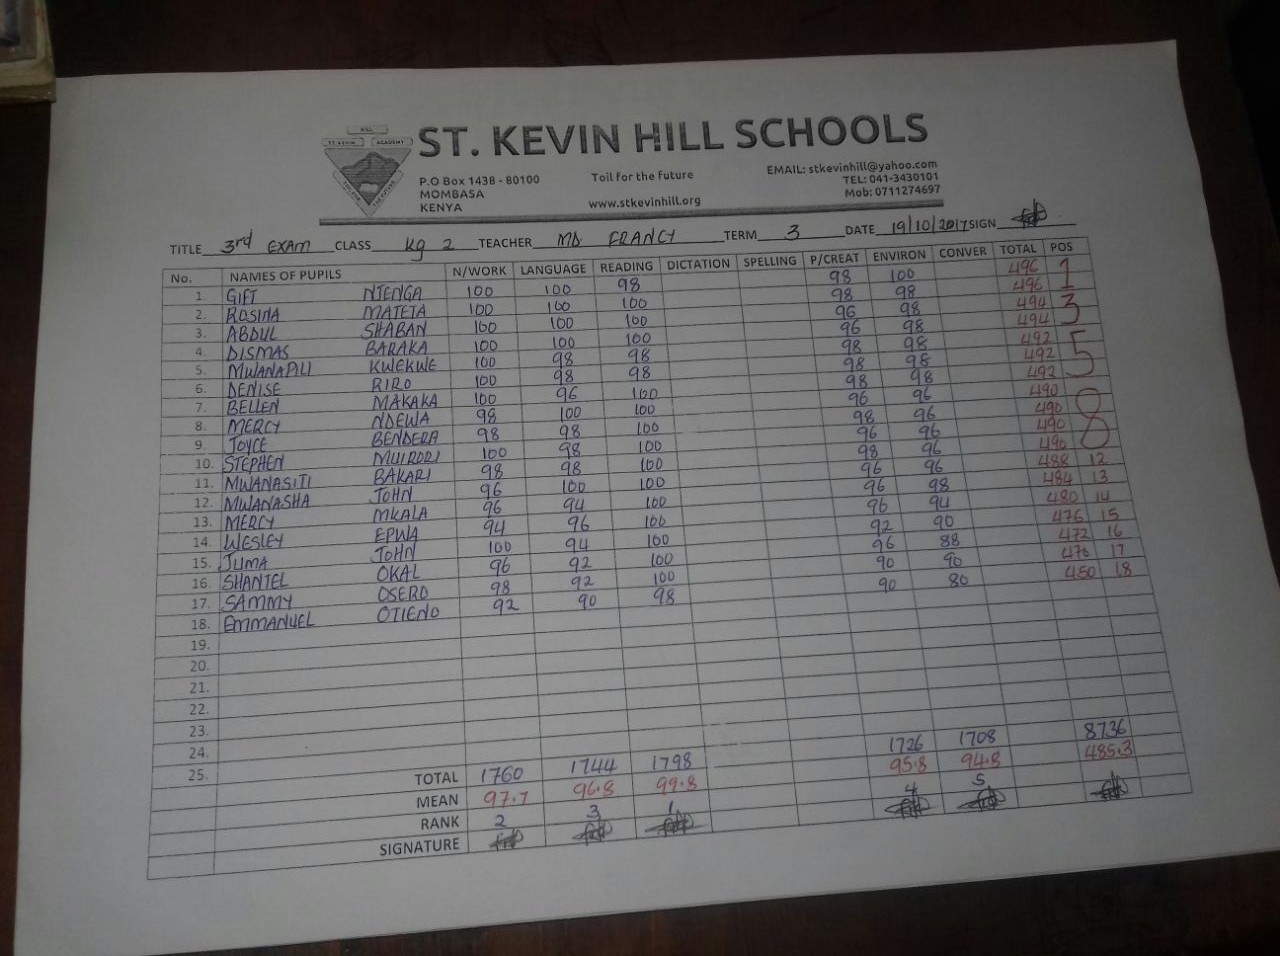 HILL
ST. KEVIN ACADEMY
ST. KEVIN HILL SCHOOLS
P.O Box 1438 - 80100 Toil for the future EMAIL: stkevinhill@yahoo.com
MOMBASA TEL: 041-3430101
KENYA www.stkevinhill.org Mob: 0711274697
TITLE 3rd EXAM CLASS Kg 2 TEACHER FRANCY TERM 3 DATE 19/10/2017 SIGN
No. NAMES OF PUPILS N/WORK LANGUAGE READING DICTATION SPELLING P/CREAT ENVIRON CONVER TOTAL POS
1. GIFT NJENGA 100 100 98 98 100 496 1
2. ROSINA MATETA 100 100 100 98 98 496
3. ABDUL SHABAN 100 100 100 96 98 494 3
4. DISMAS BARAKA 100 100 100 96 98 494
5. MWANAPILI KWEKWE 100 98 98 98 98 492 5
6. DENISE RIRO 100 98 98 98 98 492
7. BELLEN MAKAKA 100 96 100 98 98 492
8. MERCY NDEWA 98 100 100 96 96 490 8
9. JOYCE BENDERA 98 98 100 98 96 490
10. STEPHEN MUIRORI 100 98 100 96 96 490
11. MWANASITI BAKARI 98 98 100 98 96 490
12. MWANASHA JOHN 96 100 100 96 96 488 12
13. MERCY MKALA 96 94 100 96 98 484 13
14. WESLEY EPWA 94 96 100 96 94 480 14
15. JUMA JOHN 100 94 100 92 90 476 15
16. SHANTEL OKAL 96 92 100 96 88 472 16
17. SAMMY OSERO 98 92 100 90 90 470 17
18. EMMANUEL OTIENO 92 90 98 90 80 450 18
19.
20.
21.
22.
23.
24.
25.
TOTAL 1760 1744 1798 1726 1708 8736
MEAN 97.7 96.8 99.8 95.8 94.8 485.3
RANK 2 3 1 4 5
SIGNATURE